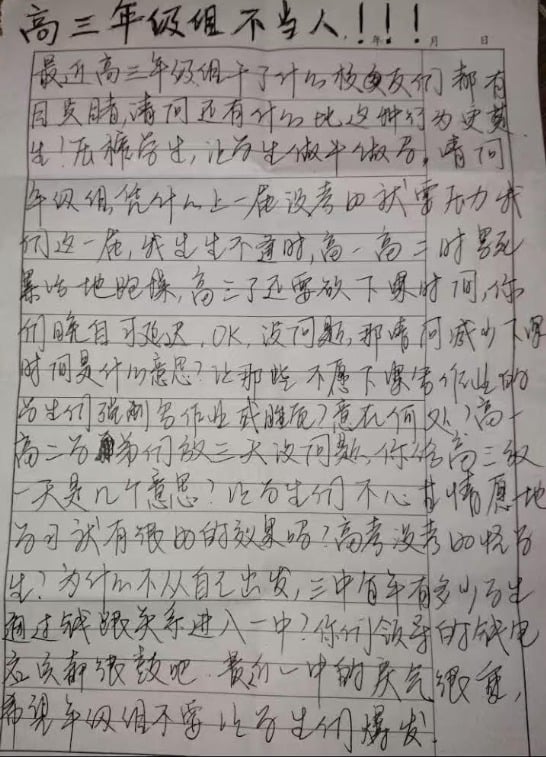 高三年级组不当人!!!
年 月 日
最近高三年级组干了什么校友们都有
目共睹,请问还有什么地 这种行为更
生!压榨学生,让学生做牛做马,请问
年级组凭什么上一届没考好就要压力我
们这一届,我生生不逢时,高一高二时累死
累活地跑操,高三了还要砍下课时间,你
们晚自习延迟,OK,没问题,那请问减少下课
时间是什么意思?让那些不愿下课写作业的
学生们强制写作业或睡觉?意在何处?高一
高二学弟们放三天没问题,你给高三放
一天是几个意思?让学生们不心甘情愿地
学习就有很好的效果吗?高考没考好怪学
生?为什么不从自己出发,三中百年有多少学生
通过钱跟关系进入一中?你们领导的钱包
应该都很鼓吧.最近一中的戾气很重,
希望年级组不要让学生们爆发.